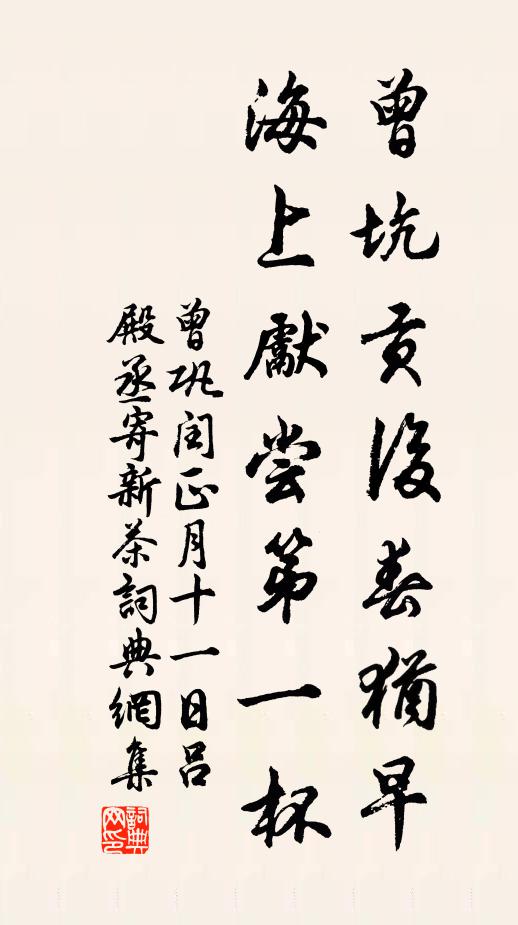 曾坑貢後春猶早
海上獻嘗第一杯
曾鞏閏正月十一日呂
殿丞寄新茶詞典網集
詞典網印